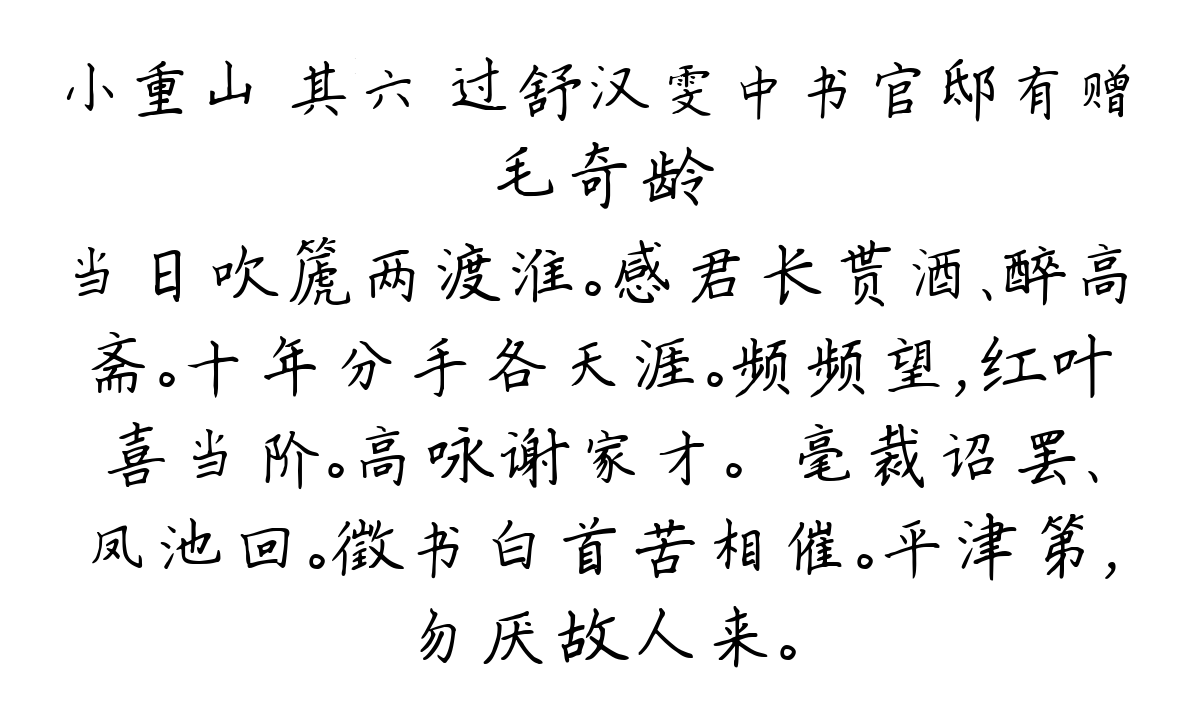 小重山 其六 过舒汉雯中书官邸有赠
毛奇龄
当日吹篪两渡淮。感君长贳酒、醉高
斋。十年分手各天涯。频频望,红叶
喜当阶。高咏谢家才。 毫裁诏罢、
凤池回。徵书白首苦相催。平津第,
勿厌故人来。